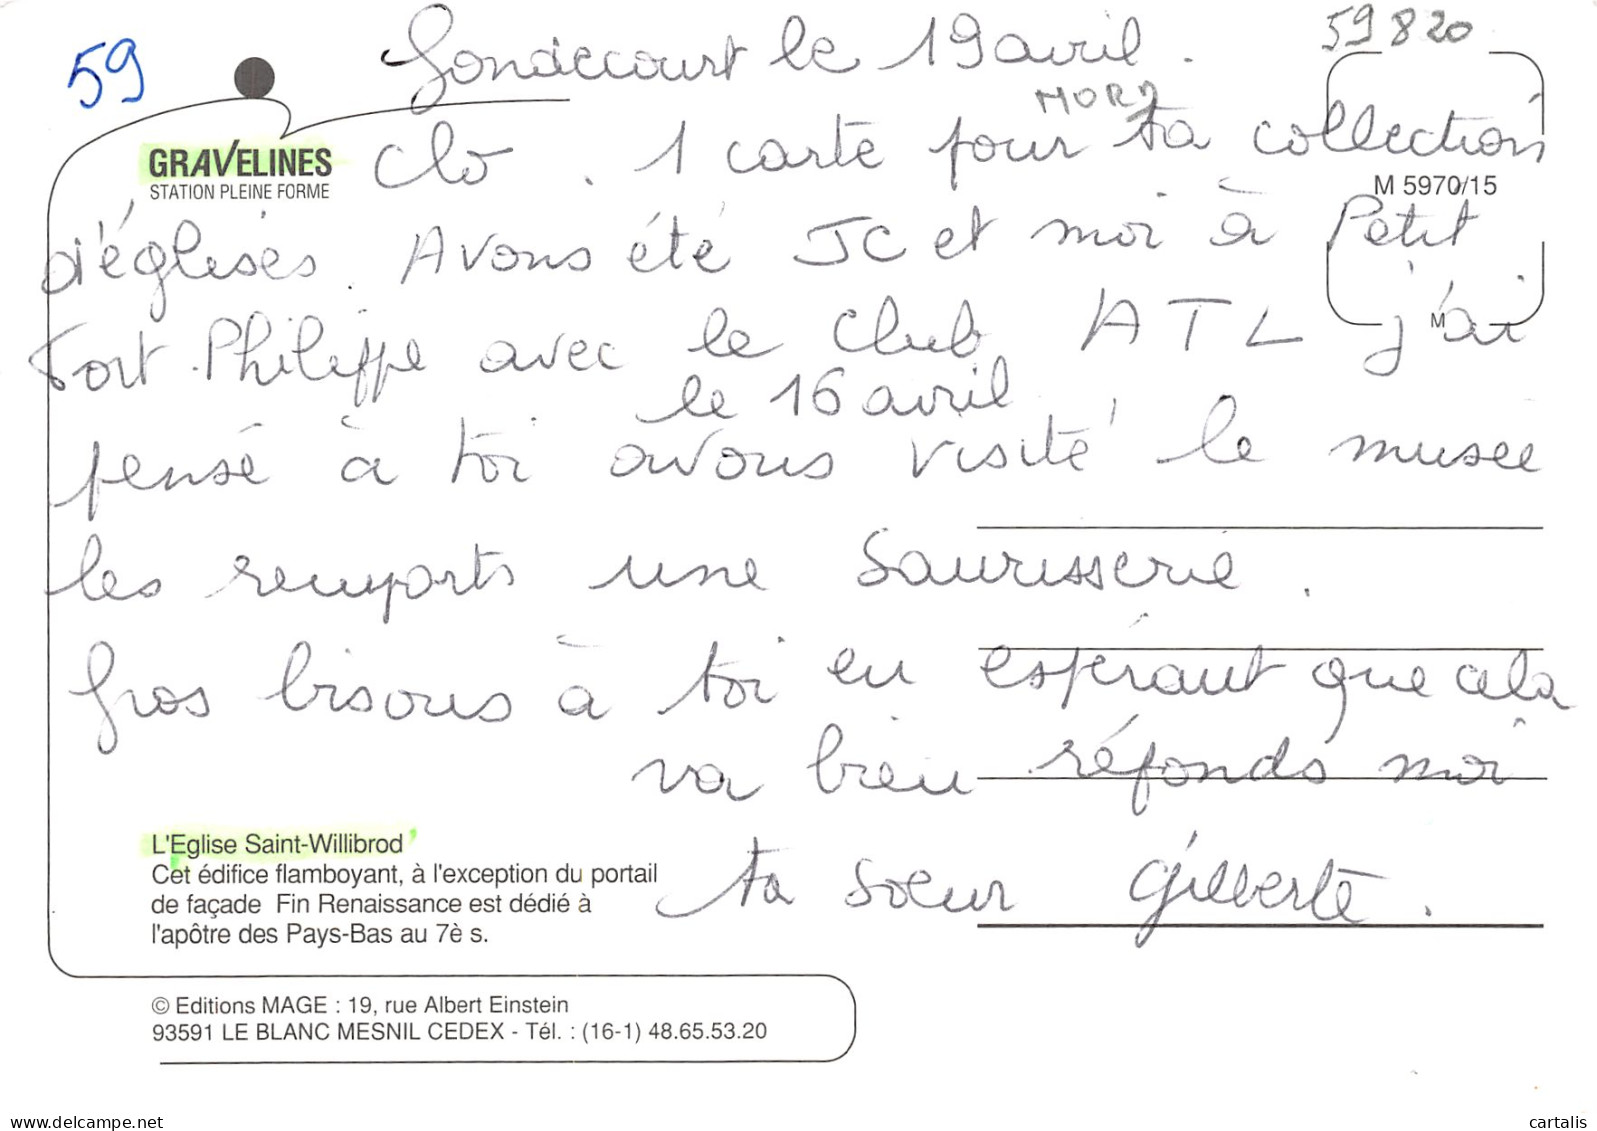 59
59820
Gondecourt le 19 avril.
NORD
GRAVELINES
STATION PLEINE FORME
Clo. 1 carte pour ta collection
M 5970/15
d'églises. Avons été JC et moi à Petit
Fort Philippe avec le Club ATL j'ai
M
le 16 avril
pensé à toi avons visité le musée
les remparts une Saurisserie.
Gros bisous à toi en espérant que cela
va bien réponds moi
L'Eglise Saint-Willibrod
Cet édifice flamboyant, à l'exception du portail
de façade Fin Renaissance est dédié à
l'apôtre des Pays-Bas au 7è s.
ta soeur Gilberte.
© Editions MAGE : 19, rue Albert Einstein
93591 LE BLANC MESNIL CEDEX - Tél. : (16-1) 48.65.53.20
www.delcampe.net
cartalis